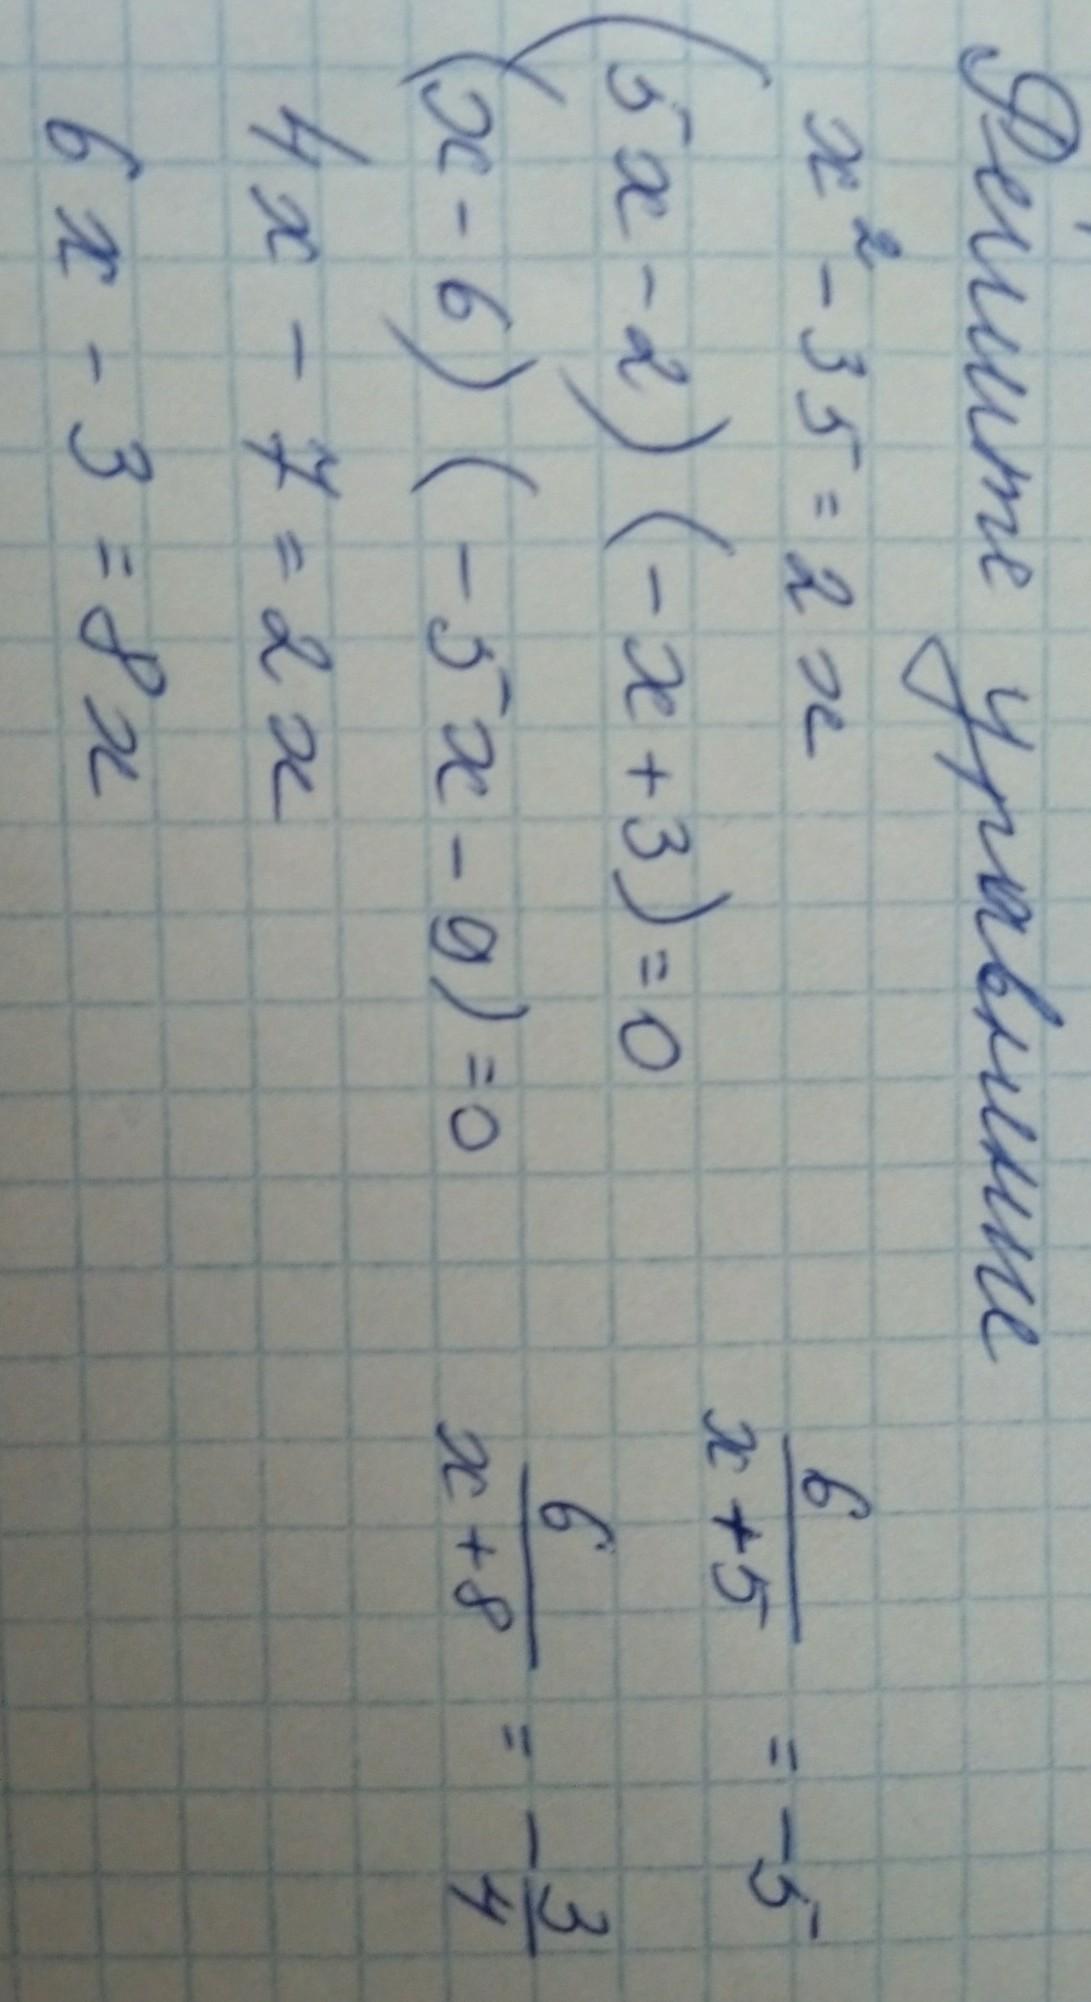 Решите уравнение
x² - 35 = 2x
(5x - 2)(-x + 3) = 0
(x - 6)(-5x - 9) = 0
4x - 7 = 2x
6x - 3 = 8x
6/(x + 5) = -5
6/(x + 8) = -3/4